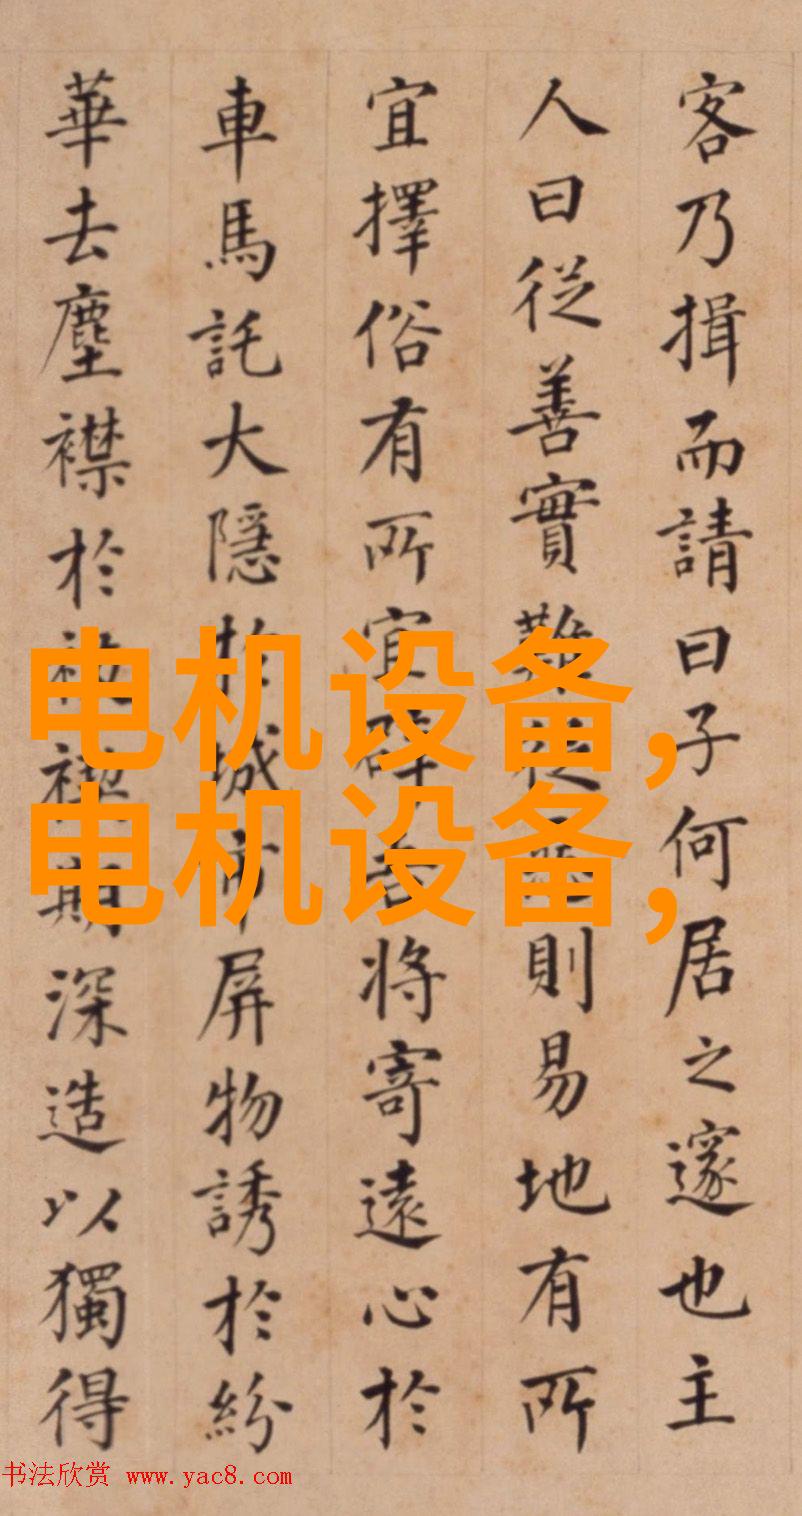 客乃揖而請曰子何居之邃也主
人曰從善實難從則易地有所
宜擇俗有所宜將寄遠心於
車馬託大隱於城市屏物誘於紛
華去塵襟於期深造以獨得
电机设备,
电机设备,
书法欣赏 www.yac8.com